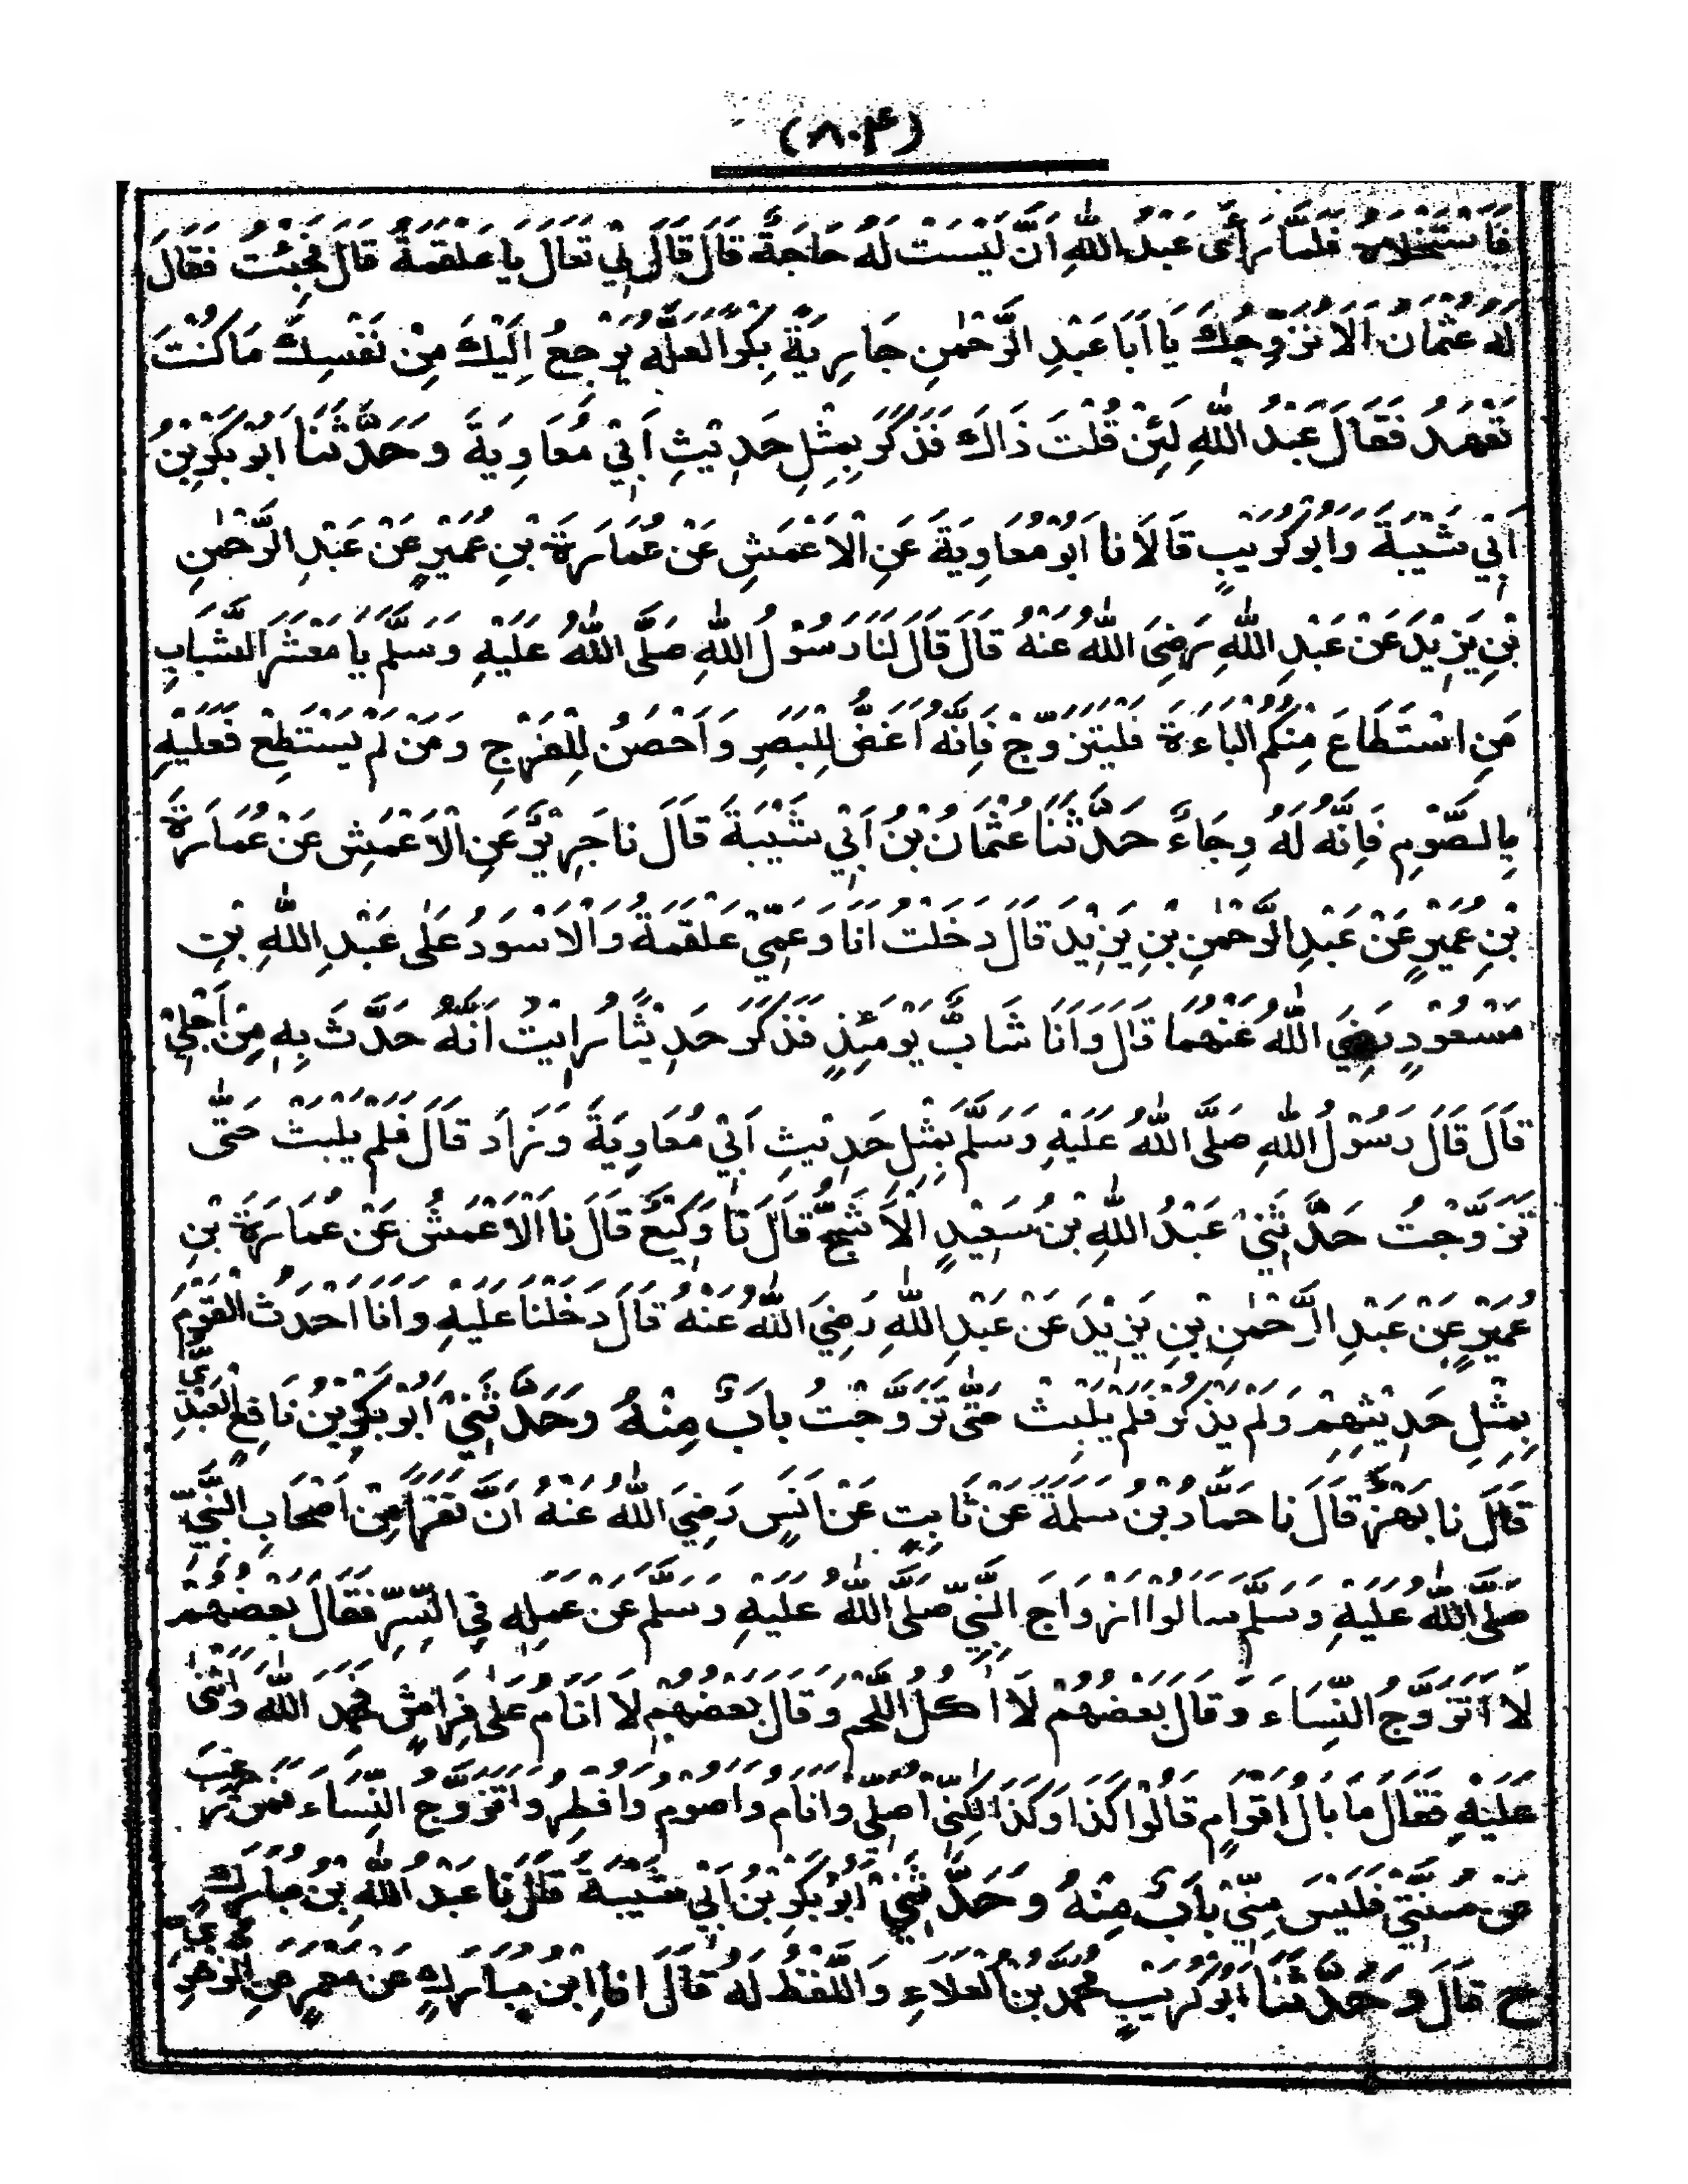 (۸۰۴)
فَاسْتَخْلَاهُ فَلَمَّا رَأَى عَبْدُ اللّٰهِ اَنَّ لَيْسَتْ لَهُ حَاجَةٌ قَالَ قَالَ لِيْ تَعَالَ يَا عَلْقَمَةُ قَالَ فَجِئْتُ فَقَالَ
لَهُ عُثْمَانُ اَلَا نُزَوِّجُكَ يَا اَبَا عَبْدِ الرَّحْمٰنِ جَارِيَةً بِكْرًا لَعَلَّهُ يَرْجِعُ اِلَيْكَ مِنْ نَفْسِكَ مَا كُنْتَ
تَعْهَدُ فَقَالَ عَبْدُ اللّٰهِ لَئِنْ قُلْتَ ذَاكَ فَذَكَرَ بِمِثْلِ حَدِيْثِ اَبِيْ مُعَاوِيَةَ وَحَدَّثَنَا اَبُوْ بَكْرِ بْنُ
اَبِيْ شَيْبَةَ وَاَبُوْ كُرَيْبٍ قَالَا نَا اَبُوْ مُعَاوِيَةَ عَنِ الْاَعْمَشِ عَنْ عُمَارَةَ بْنِ عُمَيْرٍ عَنْ عَبْدِ الرَّحْمٰنِ
بْنِ يَزِيْدَ عَنْ عَبْدِ اللّٰهِ رَضِيَ اللّٰهُ عَنْهُ قَالَ قَالَ لَنَا رَسُوْلُ اللّٰهِ صَلَّى اللّٰهُ عَلَيْهِ وَسَلَّمَ يَا مَعْشَرَ الشَّبَابِ
مَنِ اسْتَطَاعَ مِنْكُمُ الْبَاءَةَ فَلْيَتَزَوَّجْ فَاِنَّهُ اَغَضُّ لِلْبَصَرِ وَاَحْصَنُ لِلْفَرْجِ وَمَنْ لَمْ يَسْتَطِعْ فَعَلَيْهِ
بِالصَّوْمِ فَاِنَّهُ لَهُ وِجَاءٌ حَدَّثَنَا عُثْمَانُ بْنُ اَبِيْ شَيْبَةَ قَالَ نَا جَرِيْرٌ عَنِ الْاَعْمَشِ عَنْ عُمَارَةَ
بْنِ عُمَيْرٍ عَنْ عَبْدِ الرَّحْمٰنِ بْنِ يَزِيْدَ قَالَ دَخَلْتُ اَنَا وَعَمِّيْ عَلْقَمَةُ وَالْاَسْوَدُ عَلٰى عَبْدِ اللّٰهِ بْنِ
مَسْعُوْدٍ رَضِيَ اللّٰهُ عَنْهُمَا قَالَ وَاَنَا شَابٌّ يَوْمَئِذٍ فَذَكَرَ حَدِيْثًا رَاَيْتُ اَنَّهُ حَدَّثَ بِهِ مِنْ اَجْلِيْ
قَالَ قَالَ رَسُوْلُ اللّٰهِ صَلَّى اللّٰهُ عَلَيْهِ وَسَلَّمَ بِمِثْلِ حَدِيْثِ اَبِيْ مُعَاوِيَةَ وَزَادَ قَالَ فَلَمْ يَلْبَثْ حَتّٰى
تَزَوَّجْتُ حَدَّثَنِيْ عَبْدُ اللّٰهِ بْنُ سَعِيْدٍ الْاَشَجُّ قَالَ نَا وَكِيْعٌ قَالَ نَا الْاَعْمَشُ عَنْ عُمَارَةَ بْنِ
عُمَيْرٍ عَنْ عَبْدِ الرَّحْمٰنِ بْنِ يَزِيْدَ عَنْ عَبْدِ اللّٰهِ رَضِيَ اللّٰهُ عَنْهُ قَالَ دَخَلْنَا عَلَيْهِ وَاَنَا اَحْدَثُ الْقَوْمِ
بِمِثْلِ حَدِيْثِهِمْ وَلَمْ يَذْكُرْ فَلَمْ يَلْبَثْ حَتّٰى تَزَوَّجْتُ بَابٌ مِنْهُ وَحَدَّثَنِيْ اَبُوْ بَكْرِ بْنُ نَافِعٍ الْعَبْدِيُّ
قَالَ نَا بَهْزٌ قَالَ نَا حَمَّادُ بْنُ سَلَمَةَ عَنْ ثَابِتٍ عَنْ اَنَسٍ رَضِيَ اللّٰهُ عَنْهُ اَنَّ نَفَرًا مِنْ اَصْحَابِ النَّبِيِّ
صَلَّى اللّٰهُ عَلَيْهِ وَسَلَّمَ سَاَلُوْا اَزْوَاجَ النَّبِيِّ صَلَّى اللّٰهُ عَلَيْهِ وَسَلَّمَ عَنْ عَمَلِهِ فِي السِّرِّ فَقَالَ بَعْضُهُمْ
لَا اَتَزَوَّجُ النِّسَاءَ وَقَالَ بَعْضُهُمْ لَا اٰكُلُ اللَّحْمَ وَقَالَ بَعْضُهُمْ لَا اَنَامُ عَلٰى فِرَاشٍ فَحَمِدَ اللّٰهَ وَاَثْنٰى
عَلَيْهِ فَقَالَ مَا بَالُ اَقْوَامٍ قَالُوْا كَذَا وَكَذَا لٰكِنِّيْ اُصَلِّيْ وَاَنَامُ وَاَصُوْمُ وَاُفْطِرُ وَاَتَزَوَّجُ النِّسَاءَ فَمَنْ رَغِبَ
عَنْ سُنَّتِيْ فَلَيْسَ مِنِّيْ بَابٌ مِنْهُ وَحَدَّثَنِيْ اَبُوْ بَكْرِ بْنُ اَبِيْ شَيْبَةَ قَالَ نَا عَبْدُ اللّٰهِ بْنُ مُبَارَكٍ
ح قَالَ وَحَدَّثَنَا اَبُوْ كُرَيْبٍ مُحَمَّدُ بْنُ الْعَلَاءِ وَاللَّفْظُ لَهُ قَالَ اَنَا ابْنُ مُبَارَكٍ عَنْ مَعْمَرٍ عَنِ الزُّهْرِيِّ